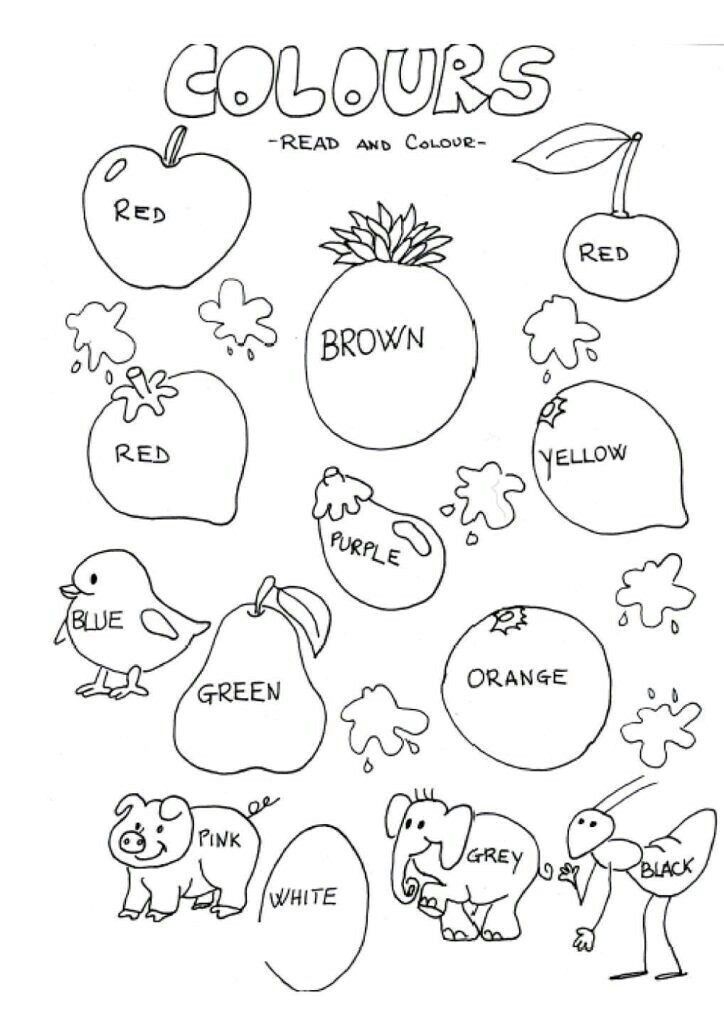 COLOURS
-READ AND COLOUR-
RED
RED
BROWN
RED
YELLOW
PURPLE
BLUE
GREEN
ORANGE
PINK
WHITE
GREY
BLACK